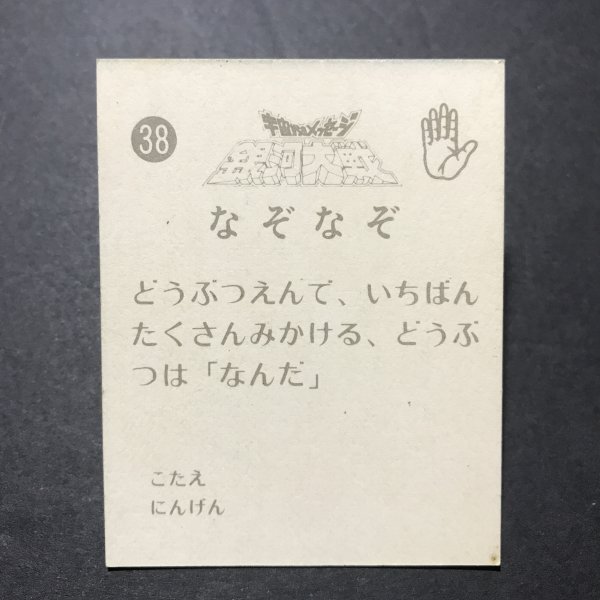 38
宇宙からのメッセージ
銀河大戦
なぞなぞ
どうぶつえんで、いちばん
たくさんみかける、どうぶ
つは「なんだ」
こたえ
にんげん